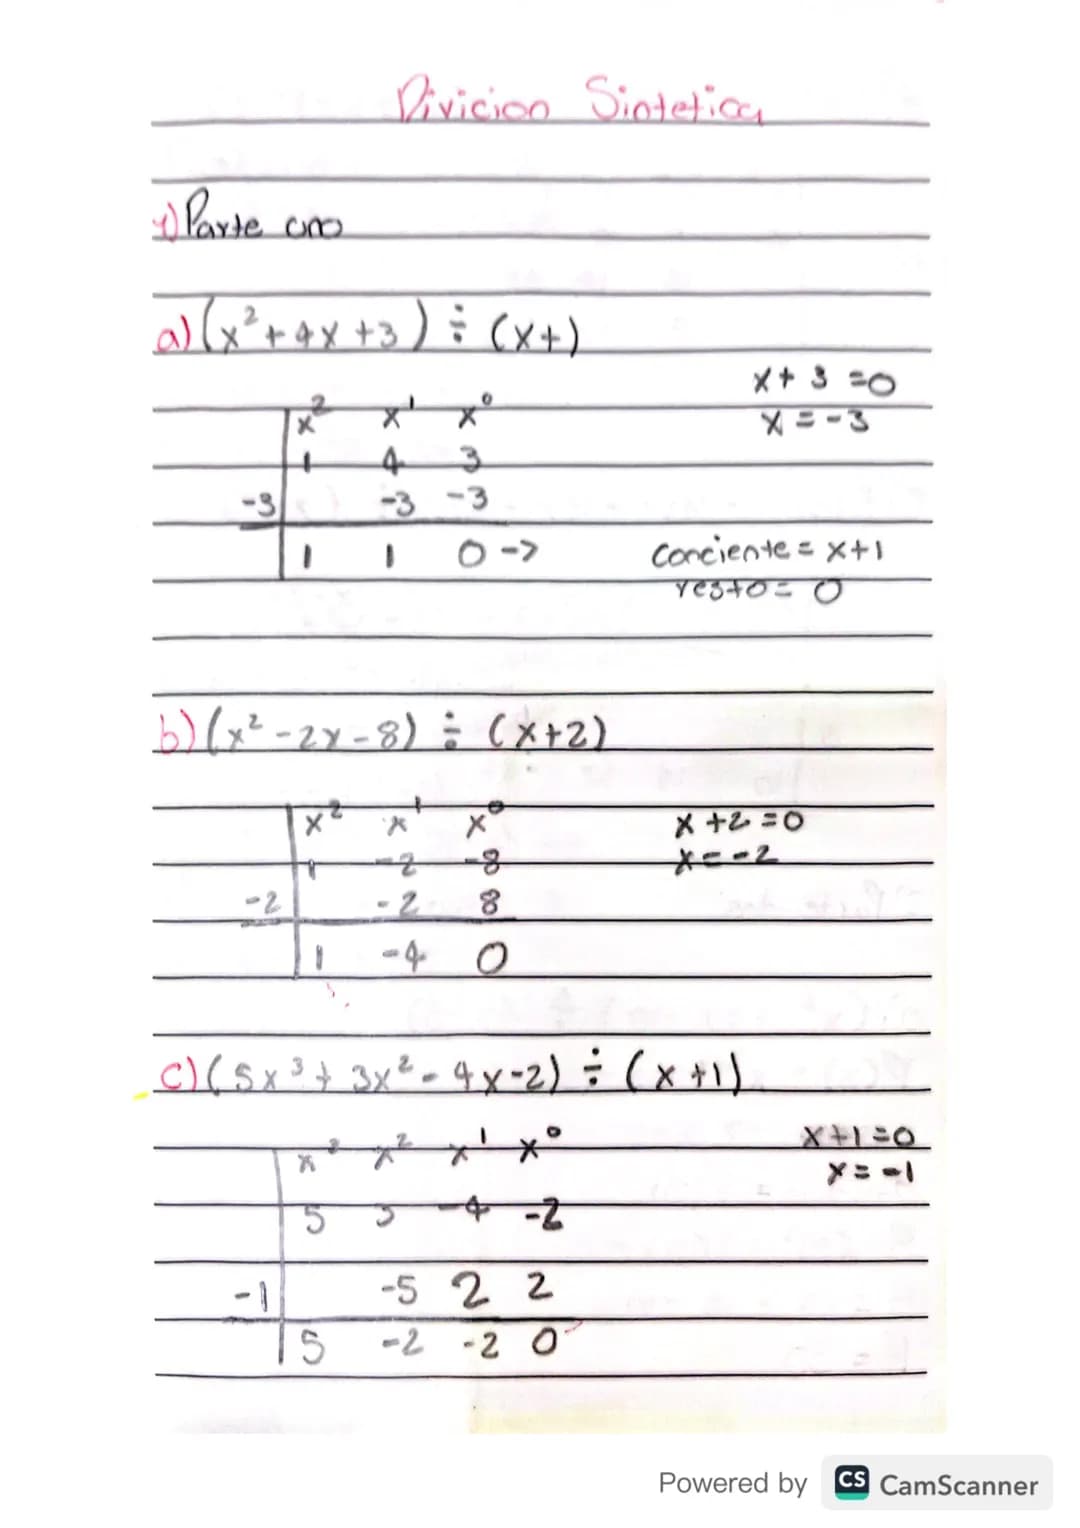 Divicion Sintetica
1) Parte uno
a) (x² + 4x + 3) ÷ (x+)
x + 3 = 0
x² x¹ x⁰
x = -3
1 4 3
-3 -3 -3
1 1 0 -> Conciente = x+1
resto = 0
b) (x² - 2x - 8) ÷ (x+2)
x² x¹ x⁰ x + 2 = 0
1 -2 -8 x = -2
-2 -2 8
1 -4 0
c) (5x³ + 3x² - 4x - 2) ÷ (x + 1)
x³ x² x¹ x⁰ x+1=0
x = -1
5 3 -4 -2
-1 -5 2 2
5 -2 -2 0
Powered by CS CamScanner